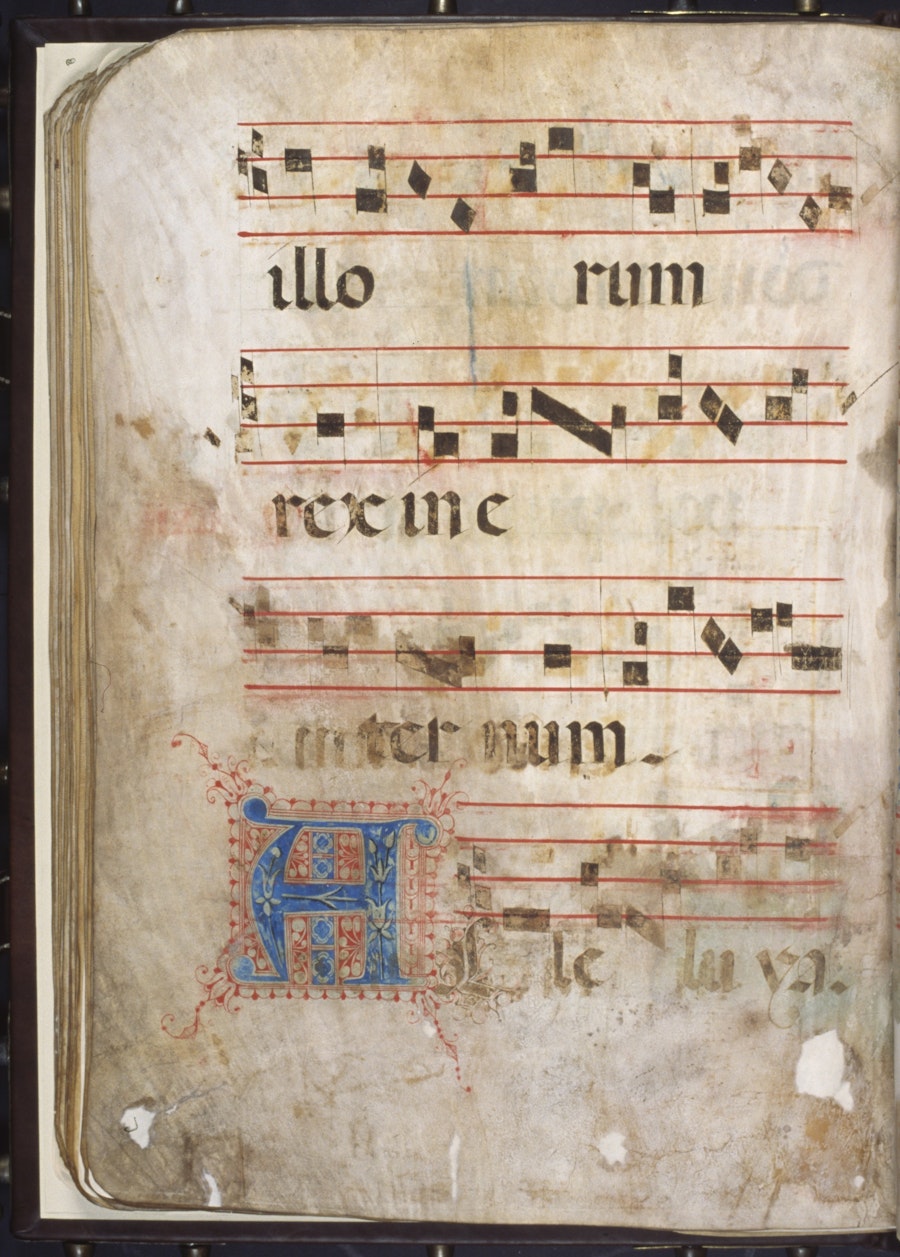 illo rum
rex in e
in ter num.
AL le lu ya.